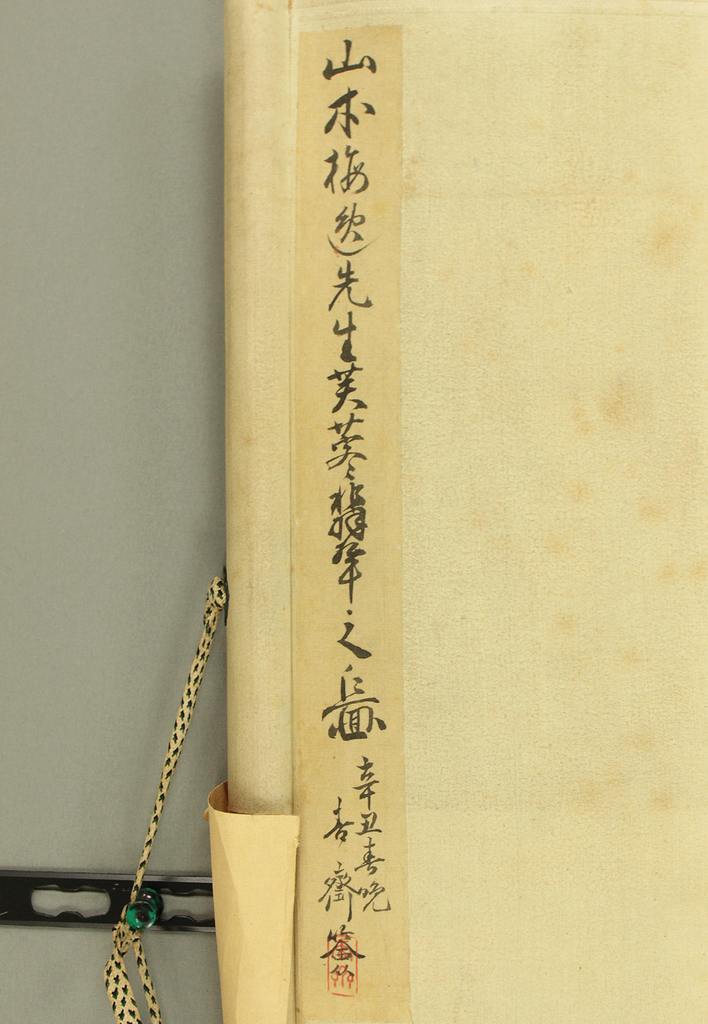 山本梅逸先生芙蓉翡翠之圖
辛丑春晩
杏齋